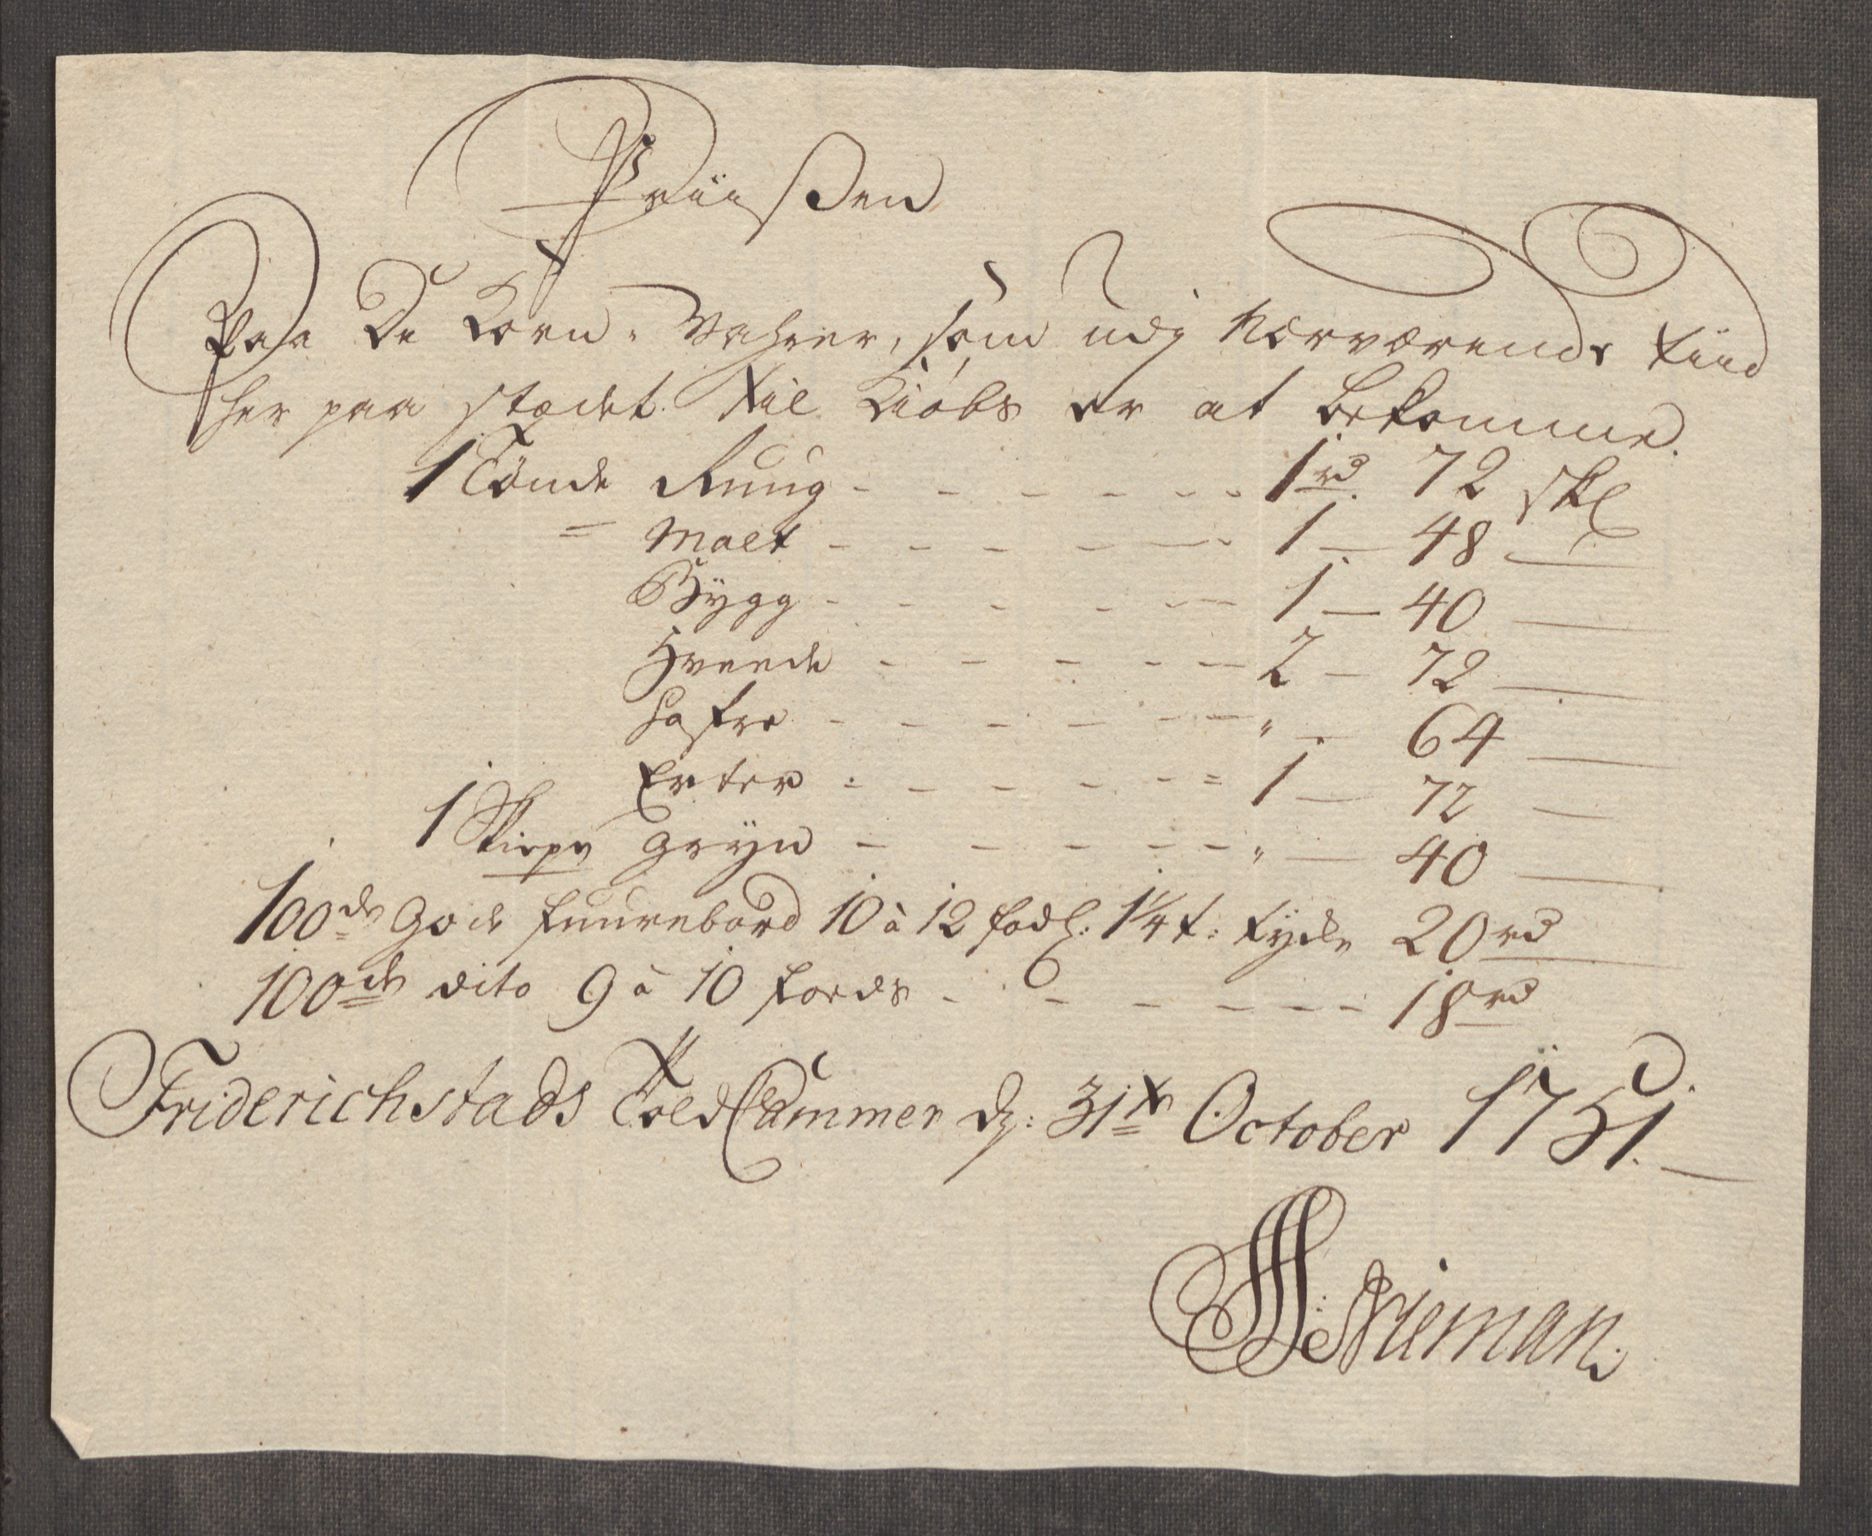 Priisen
Paa De Korn-Vahrer, som udj Nærværende Tiid
her paa stædet til Kiöbs er at bekomme.
1 Tønde Ruug - - - - - - - 1 rd. 72 skl
= Malt - - - - - - 1 - 48 -
Bÿgg - - - - - - 1 - 40 -
Hveede - - - - - 2 - 72 -
Hafre - - - - - - " - 64 -
Erter - - - - - = 1 - 72 -
1 Skiepe Grÿn - - - - - " - 40 -
100de Gode fuurebord 10 à 12 fods. 1 1/4 t: tÿcke 20 rd
100de dito 9 à 10 foeds - - - - - - 18 rd
Friderichstads Told Cammer d: 31te October 1751.
Nieman.